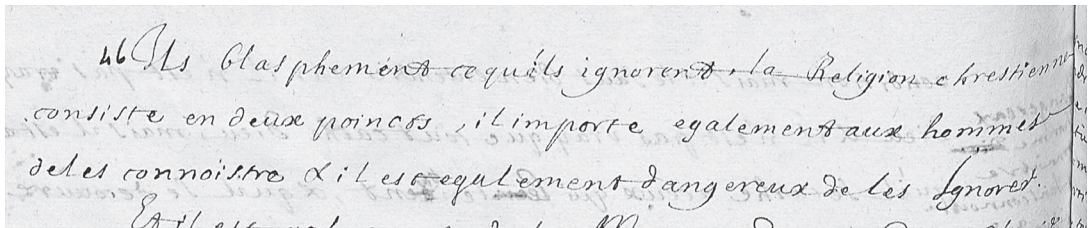 46 Ils blasphement ce quils ignorent, la Religion chrestienne
consiste en deux poincts, il importe egalement aux hommes
de les connoistre & il est egalement dangereux de les Ignorer.
Et il est